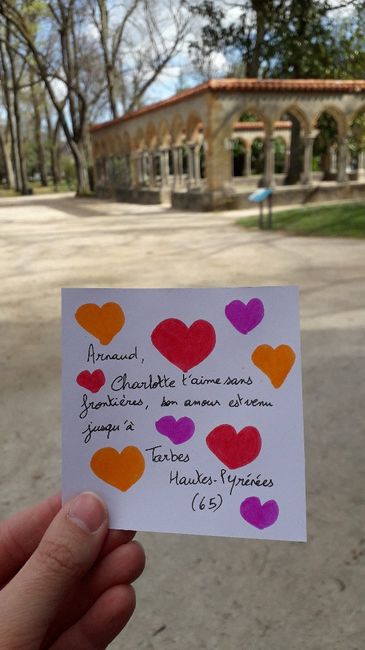 Arnaud,
Charlotte t'aime sans
frontières, son amour est venu
jusqu'à
Tarbes
Hautes-Pyrénées
(65)